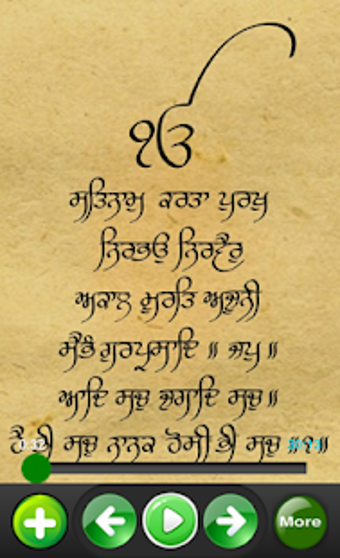 ੴ
ਸਤਿਨਾਮੁ ਕਰਤਾ ਪੁਰਖੁ
ਨਿਰਭਉ ਨਿਰਵੈਰੁ
ਅਕਾਲ ਮੂਰਤਿ ਅਜੂਨੀ
ਸੈਭੰ ਗੁਰਪ੍ਰਸਾਦਿ ॥ ਜਪੁ ॥
ਆਦਿ ਸਚੁ ਜੁਗਾਦਿ ਸਚੁ ॥
ਹੈ ਭੀ ਸਚੁ ਨਾਨਕ ਹੋਸੀ ਭੀ ਸਚੁ ॥੧॥
More